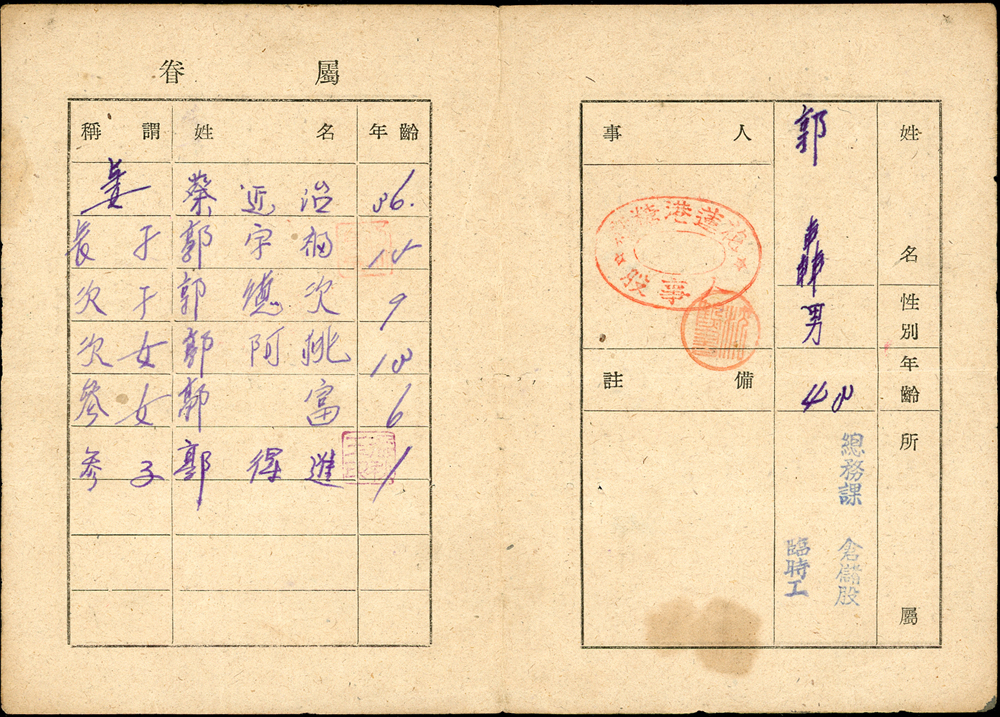 眷屬
稱謂 姓名 年齡
妻 蔡近治 36.
長子 郭宗福 15
次子 郭德次 9
次女 郭阿桃 18
參女 郭富 6
參子 郭得進 1
姓名 郭
性別 男
年齡 48
所屬 總務課 倉儲股
臨時工
人事
花蓮港
人事股
備註